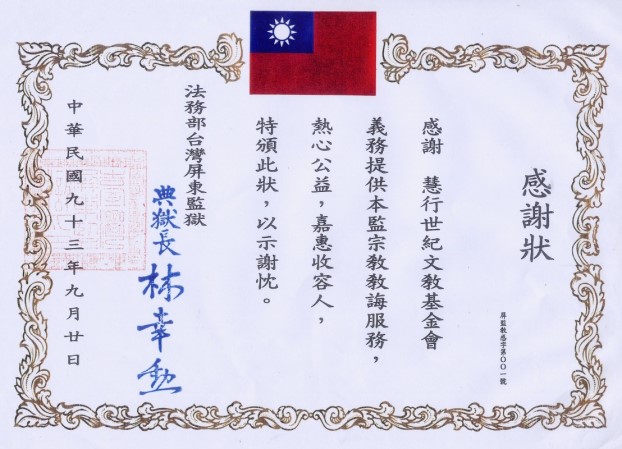 感謝狀
屏監教感字第〇〇一號
感謝　慧行世紀文教基金會
義務提供本監宗教教誨服務，
熱心公益，嘉惠收容人，
特頒此狀，以示謝忱。
法務部台灣屏東監獄
典獄長 林幸勳
中華民國九十三年九月廿日